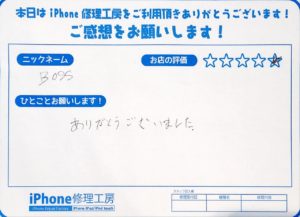 本日は iPhone 修理工房をご利用頂きありがとうございます！
ご感想をお願いします！
ニックネーム
お店の評価 ☆☆☆☆☆
BOSS
ひとことお願いします！
ありがとうございました。
iPhone修理工房